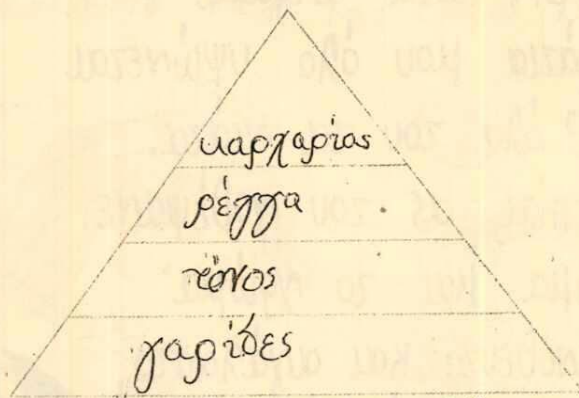 καρχαρίας
ρέγγα
τόνος
γαρίδες